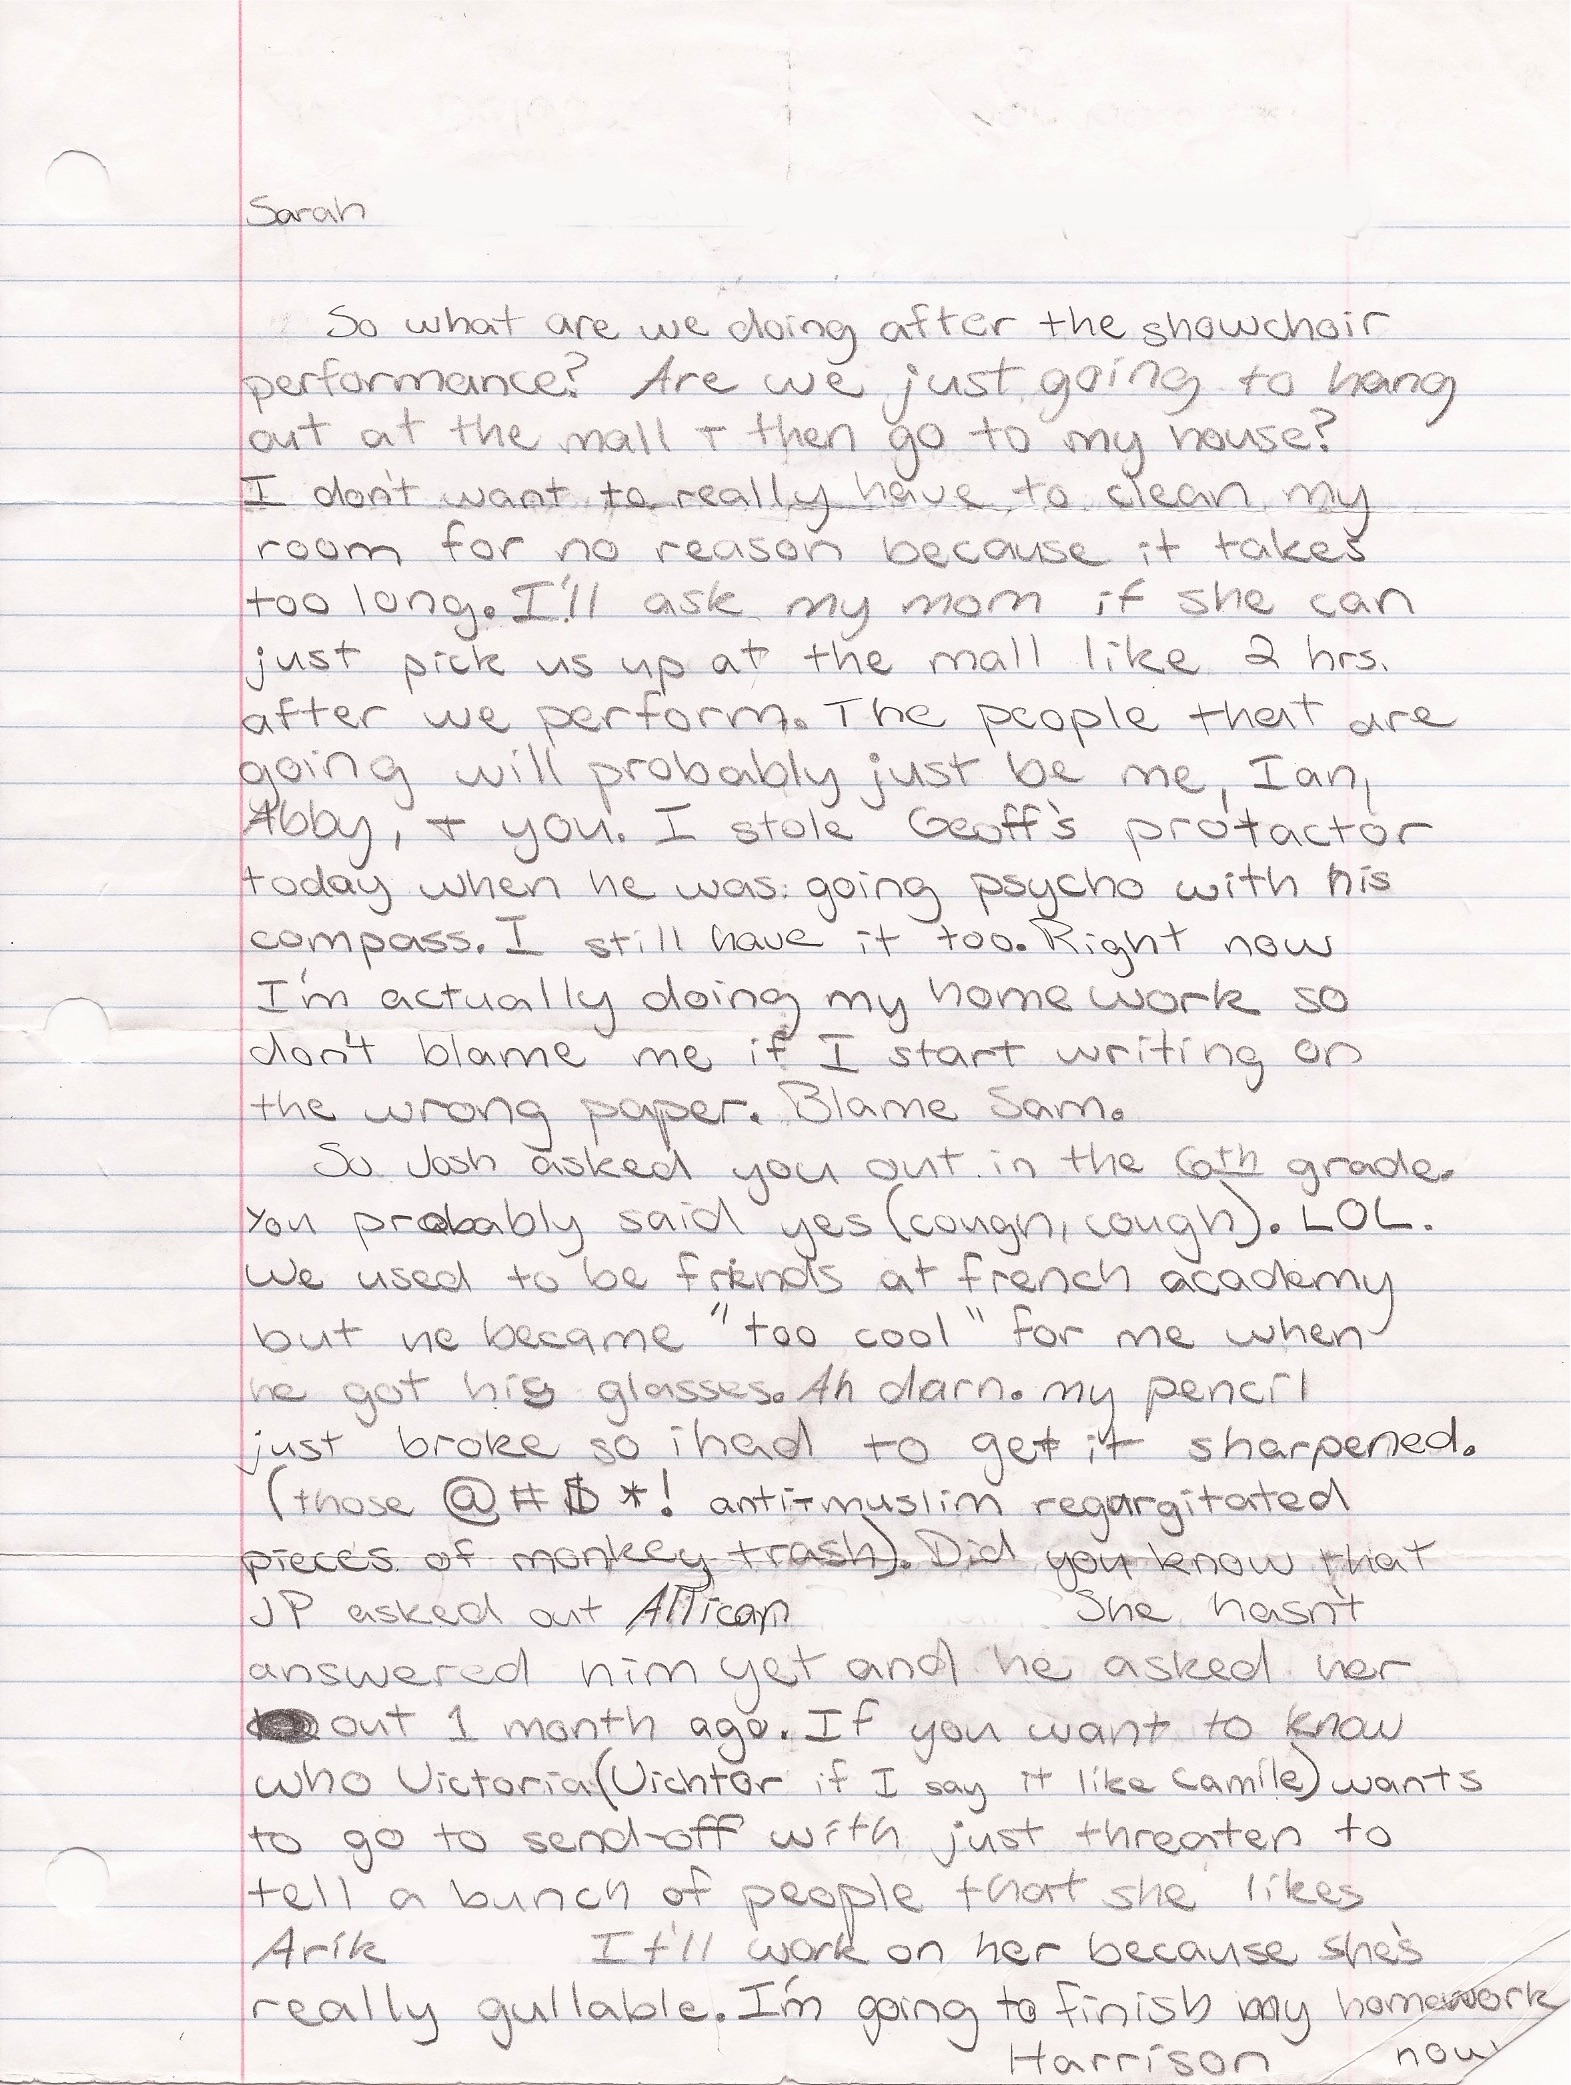 Sarah
So what are we doing after the showchoir
performance? Are we just going to hang
out at the mall + then go to my house?
I don't want to really have to clean my
room for no reason because it takes
too long. I'll ask my mom if she can
just pick us up at the mall like 2 hrs.
after we perform. The people that are
going will probably just be me, Ian,
Abby, + you. I stole Geoff's protactor
today when he was going psycho with his
compass. I still have it too. Right now
I'm actually doing my homework so
don't blame me if I start writing on
the wrong paper. Blame Sam.
So Josh asked you out in the 6th grade.
You probably said yes (cough, cough). LOL.
We used to be friends at french academy
but he became "too cool" for me when
he got his glasses. Ah darn. my pencil
just broke so i had to get it sharpened.
(those @#$*! anti-muslim regurgitated
pieces of monkey trash). Did you know that
JP asked out She hasn't
answered him yet and he asked her
out 1 month ago. If you want to know
who Victoria (Vichtor if I say it like Camile) wants
to go to send-off with just threaten to
tell a bunch of people that she likes
Arik It'll work on her because she's
really gullable. I'm going to finish my homework
Harrison now